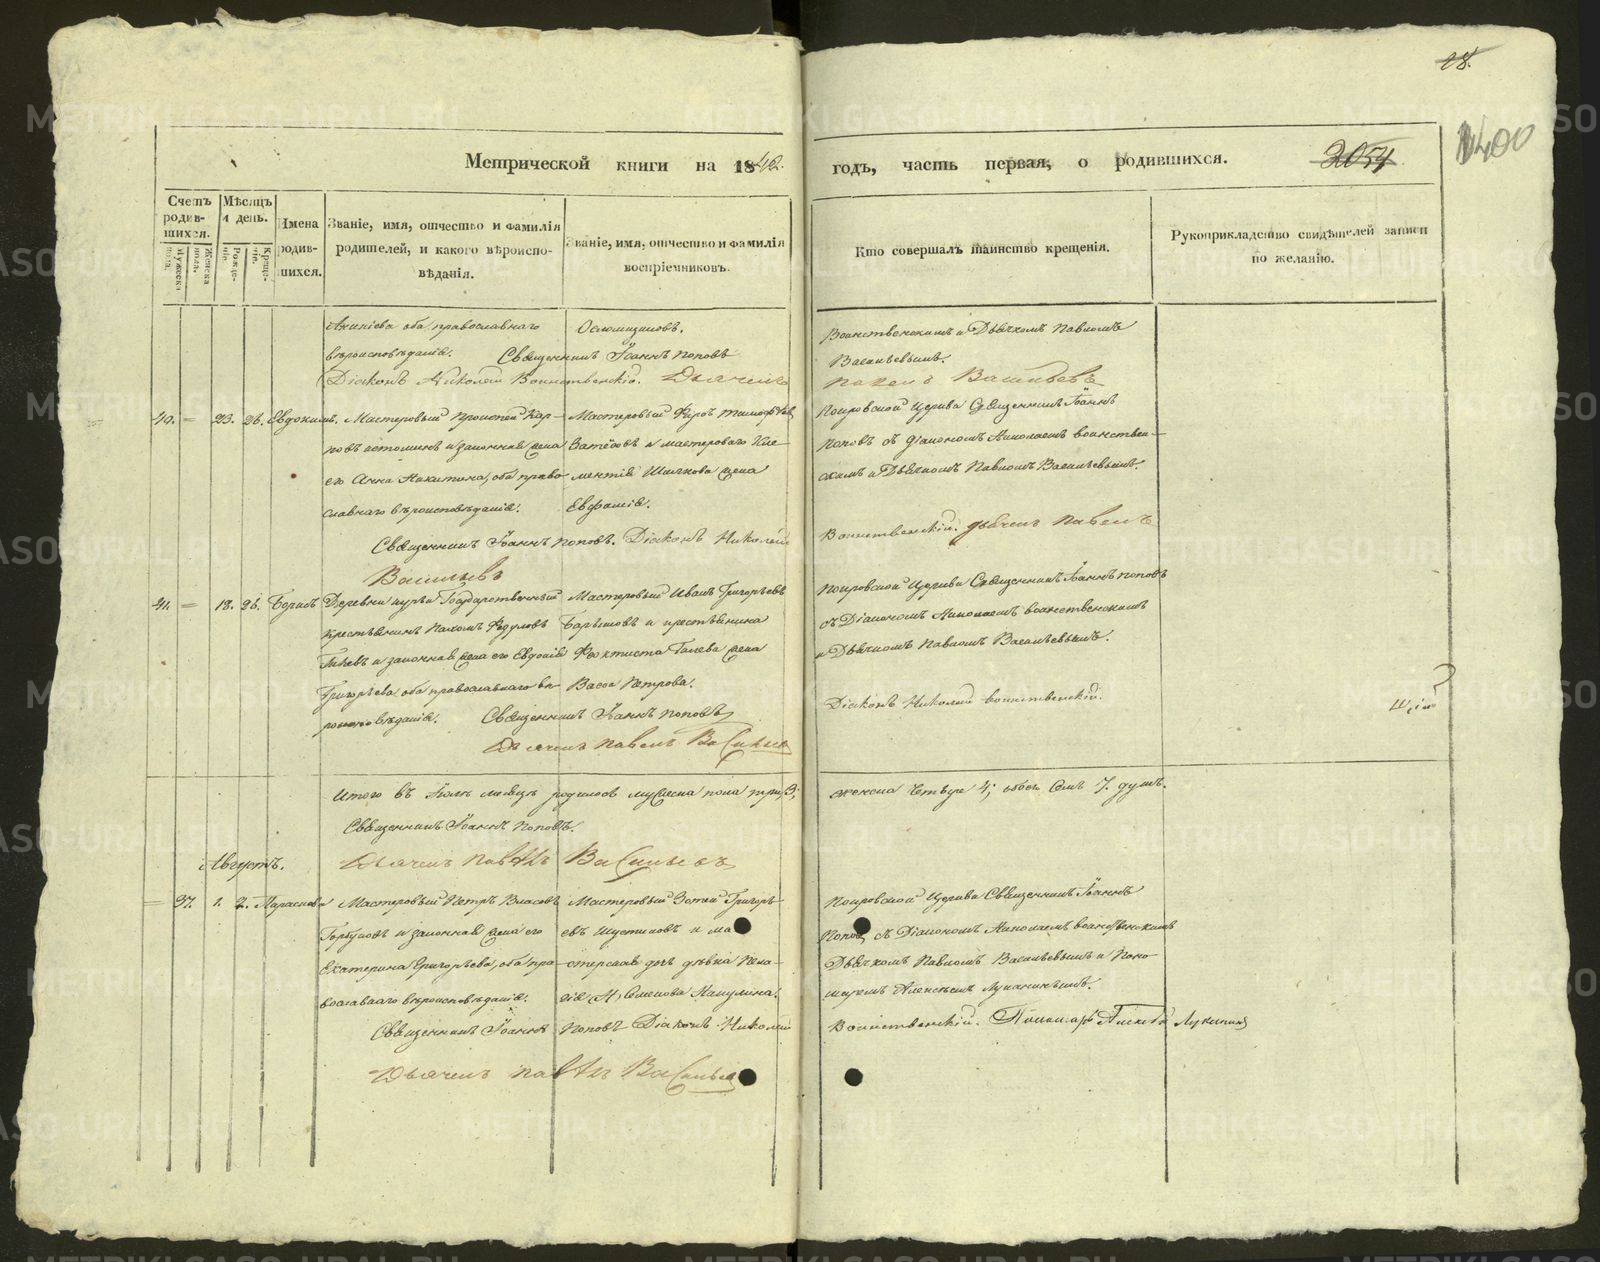 28.
1400
2054
Метрической книги на 1842. годъ, часть первая, о родившихся.
Счетъ родив- шихся.
Мужеска пола.
Женска пола.
Мѣсяцъ и день.
Рожде- ніе.
Креще- ніе.
Имена родив- шихся.
Званіе, имя, отчество и фамилія родителей, и какого вѣроиспо- вѣданія.
Званіе, имя, отчество и фамилія воспріемниковъ.
Кто совершалъ таинство крещенія.
Рукоприкладство свидѣтелей записи по желанію.
оба православнаго
вѣроисповѣданія. Священникъ Іоаннъ Поповъ
Діаконъ Николай Воинственскій. Дьячекъ
Воинственскимъ и Дьячкомъ Павломъ
Васильевымъ.
Павелъ Васильевъ
40. = 23. 26. Евдокимъ.
Мастеровый
законная жена
его Анна Никитина, оба право-
славнаго вѣроисповѣданія.
Мастеровый
и мастероваго Кле-
ментія жена
Евфимія.
Священникъ Іоаннъ Поповъ. Діаконъ Николай
Васильевъ
Покровской Церкви Священникъ Іоаннъ
Поповъ съ Діакономъ Николаемъ Воинствен-
скимъ и Дьячкомъ Павломъ Васильевымъ.
Воинственскій. Дьячекъ Павелъ
41. = 18. 26. Борисъ
Деревни Государственный
крестьянинъ
и законная жена его Евдокія
Григорьева, оба православнаго вѣ-
роисповѣданія.
Мастеровый Иванъ Григорьевъ
и крестьянина
жена
Васса Петрова.
Священникъ Іоаннъ Поповъ
Дьячекъ Павелъ Васильевъ
Покровской Церкви Священникъ Іоаннъ Поповъ
съ Діакономъ Николаемъ Воинственскимъ
и Дьячкомъ Павломъ Васильевымъ.
Діаконъ Николай Воинственскій.
Итого въ Іюлѣ мѣсяцѣ родилось мужеска пола три, 3;
женска четыре 4; обоего семь 7. душъ.
Священникъ Іоаннъ Поповъ.
Дьячекъ Павелъ Васильевъ
Августъ.
= 37. 1. 2. Параскева
Мастеровый Петръ Власовъ
Горбуновъ и законная жена его
Екатерина Григорьева, оба пра-
вославнаго вѣроисповѣданія.
Мастеровый Зотей Григорь-
евъ и ма-
стерская дочь дѣвка Пела-
гія Семенова
Священникъ Іоаннъ Поповъ Діаконъ Николай
Дьячекъ Павелъ Васильевъ
Покровской Церкви Священникъ Іоаннъ
Поповъ съ Діакономъ Николаемъ Воинственскимъ
Дьячкомъ Павломъ Васильевымъ и Поно-
маремъ Алексѣемъ Лукинымъ.
Воинственскій. Пономарь Алексѣй Лукинъ
METRIKI.GASO-URAL.RU